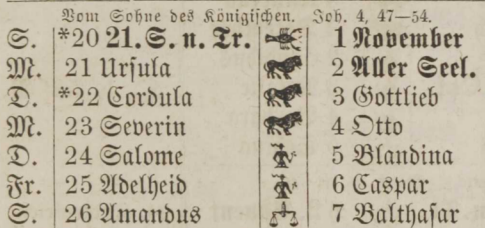 Vom Sohne des Königischen. Joh. 4, 47—54.
S. *20 21. S. n. Tr. 1 November
M. 21 Ursula 2 Aller Seel.
D. *22 Cordula 3 Gottlieb
M. 23 Severin 4 Otto
D. 24 Salome 5 Blandina
Fr. 25 Adelheid 6 Caspar
S. 26 Amandus 7 Balthasar